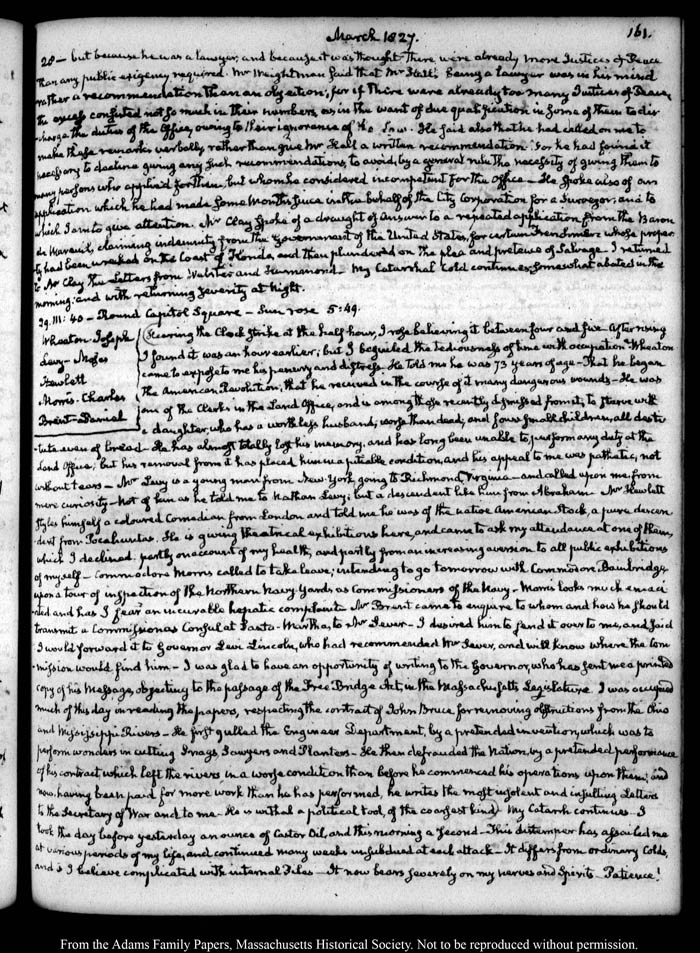 March 1827.
161.
28 — but because he was a lawyer, and because it was thought there were already more Justices of Peace
than any public exigency required. Mr Weightman said that Mr Hall's being a lawyer was in his mind
rather a recommendation than an objection; for if there were already too many Justices of Peace,
the excess consisted not so much in their numbers, as in the want of due qualification in some of them to dis-
-charge the duties of the Office, owing to their ignorance of the Law. He said also that he had called on me to
make these remarks verbally rather than give Mr Hall a written recommendation. For he had found it
necessary to decline giving any such recommendations, to avoid, by a general rule the necessity of giving them to
many persons who applied for them, but whom he considered incompetent for the Office — He spoke also of an
application which he had made some months since in the behalf of the City Corporation for a Surveyor; and to
which I am to give attention. Mr Clay spoke of a draught of Answer to a repeated application from the Baron
de Mareuil, claiming indemnity from the Government of the United States, for certain Frenchmen whose proper-
-ty had been wrecked on the Coast of Florida, and then plundered on the plea and pretence of Salvage. I returned
to Mr Clay the Letters from Webster and Hammond. My Catarrhal Cold continues, somewhat abated in the
morning: and with returning severity at Night.
29. III: 40 — Round Capitol Square — Sun rose 5:49.
Wheaton. Joseph
Levy — Moses
Hewlett
Morris. Charles
Brent — Daniel
Hearing the Clock strike at the half-hour, I rose believing it between four and five. After rising
I found it was an hour earlier; but I beguiled the tediousness of time with occupation. Wheaton
came to expose to me his penury and distress. He told me he was 73 years of age — That he began
the American Revolution, that he received in the course of it many dangerous wounds — He was
one of the Clerks in the Land Office, and is among those recently dismissed from it, to starve with
a daughter, who has a worthless husband, worse than dead, and four small children, all desti-
-tute even of bread — He has almost totally lost his memory, and has long been unable to perform any duty at the
Land Office; but his removal from it has placed him in a pitiable condition, and his appeal to me was pathetic, not
without tears — Mr Levy is a young man from New York going to Richmond, Virginia — and called upon me, from
mere curiosity — Not of kin as he told me to Nathan Levy; but a descendent like him from Abraham. Mr Hewlett
styles himself a coloured Comedian from London and told me he was of the native American Stock, a pure descen-
-dent from Pocahuntas. He is giving theatrical exhibitions here, and came to ask my attendance at one of them,
which I declined. partly on account of my health, and partly from an increasing aversion to all public exhibitions
of myself — Commodore Morris called to take leave; intending to go tomorrow with Commodore Bainbridge
upon a tour of inspection of the Northern Navy Yards as Commissioners of the Navy. — Morris looks much emaci-
-ated and has I fear an incurable hepatic complaint — Mr Brent came to enquire to whom and how he should
transmit a Commission as Consul at Santa-Martha, to Mr Sever — I desired him to send it over to me, and said
I would forward it to Governor Levi Lincoln, who had recommended Mr Sever, and will know where the Com-
-mission would find him — I was glad to have an opportunity of writing to the Governor, who has sent me a printed
copy of his Message, objecting to the passage of the Free Bridge Act, in the Massachusetts Legislature. I was occupied
much of this day in reading the papers, respecting the contract of John Bruce for removing obstructions from the Ohio
and Mississippi Rivers — He first gulled the Engineer Department, by a pretended invention, which was to
perform wonders in cutting Snags, Sawyers and Planters — He then defrauded the Nation, by a pretended performance
of his contract, which left the rivers in a worse condition than before he commenced his operations upon them; and
now, having been paid for more work than he has performed, he writes the most insolent and insulting Letters
to the Secretary of War and to me — He is withal a political tool, of the coarsest kind. My Catarrh continues — I
took the day before yesterday an ounce of Castor Oil, and this morning a second — This distemper has assailed me
at various periods of my life, and continued many weeks unsubdued at each attack — It differs from ordinary Colds,
and is I believe complicated with internal Piles — It now bears severely on my nerves and Spirits — Patience!
From the Adams Family Papers, Massachusetts Historical Society. Not to be reproduced without permission.